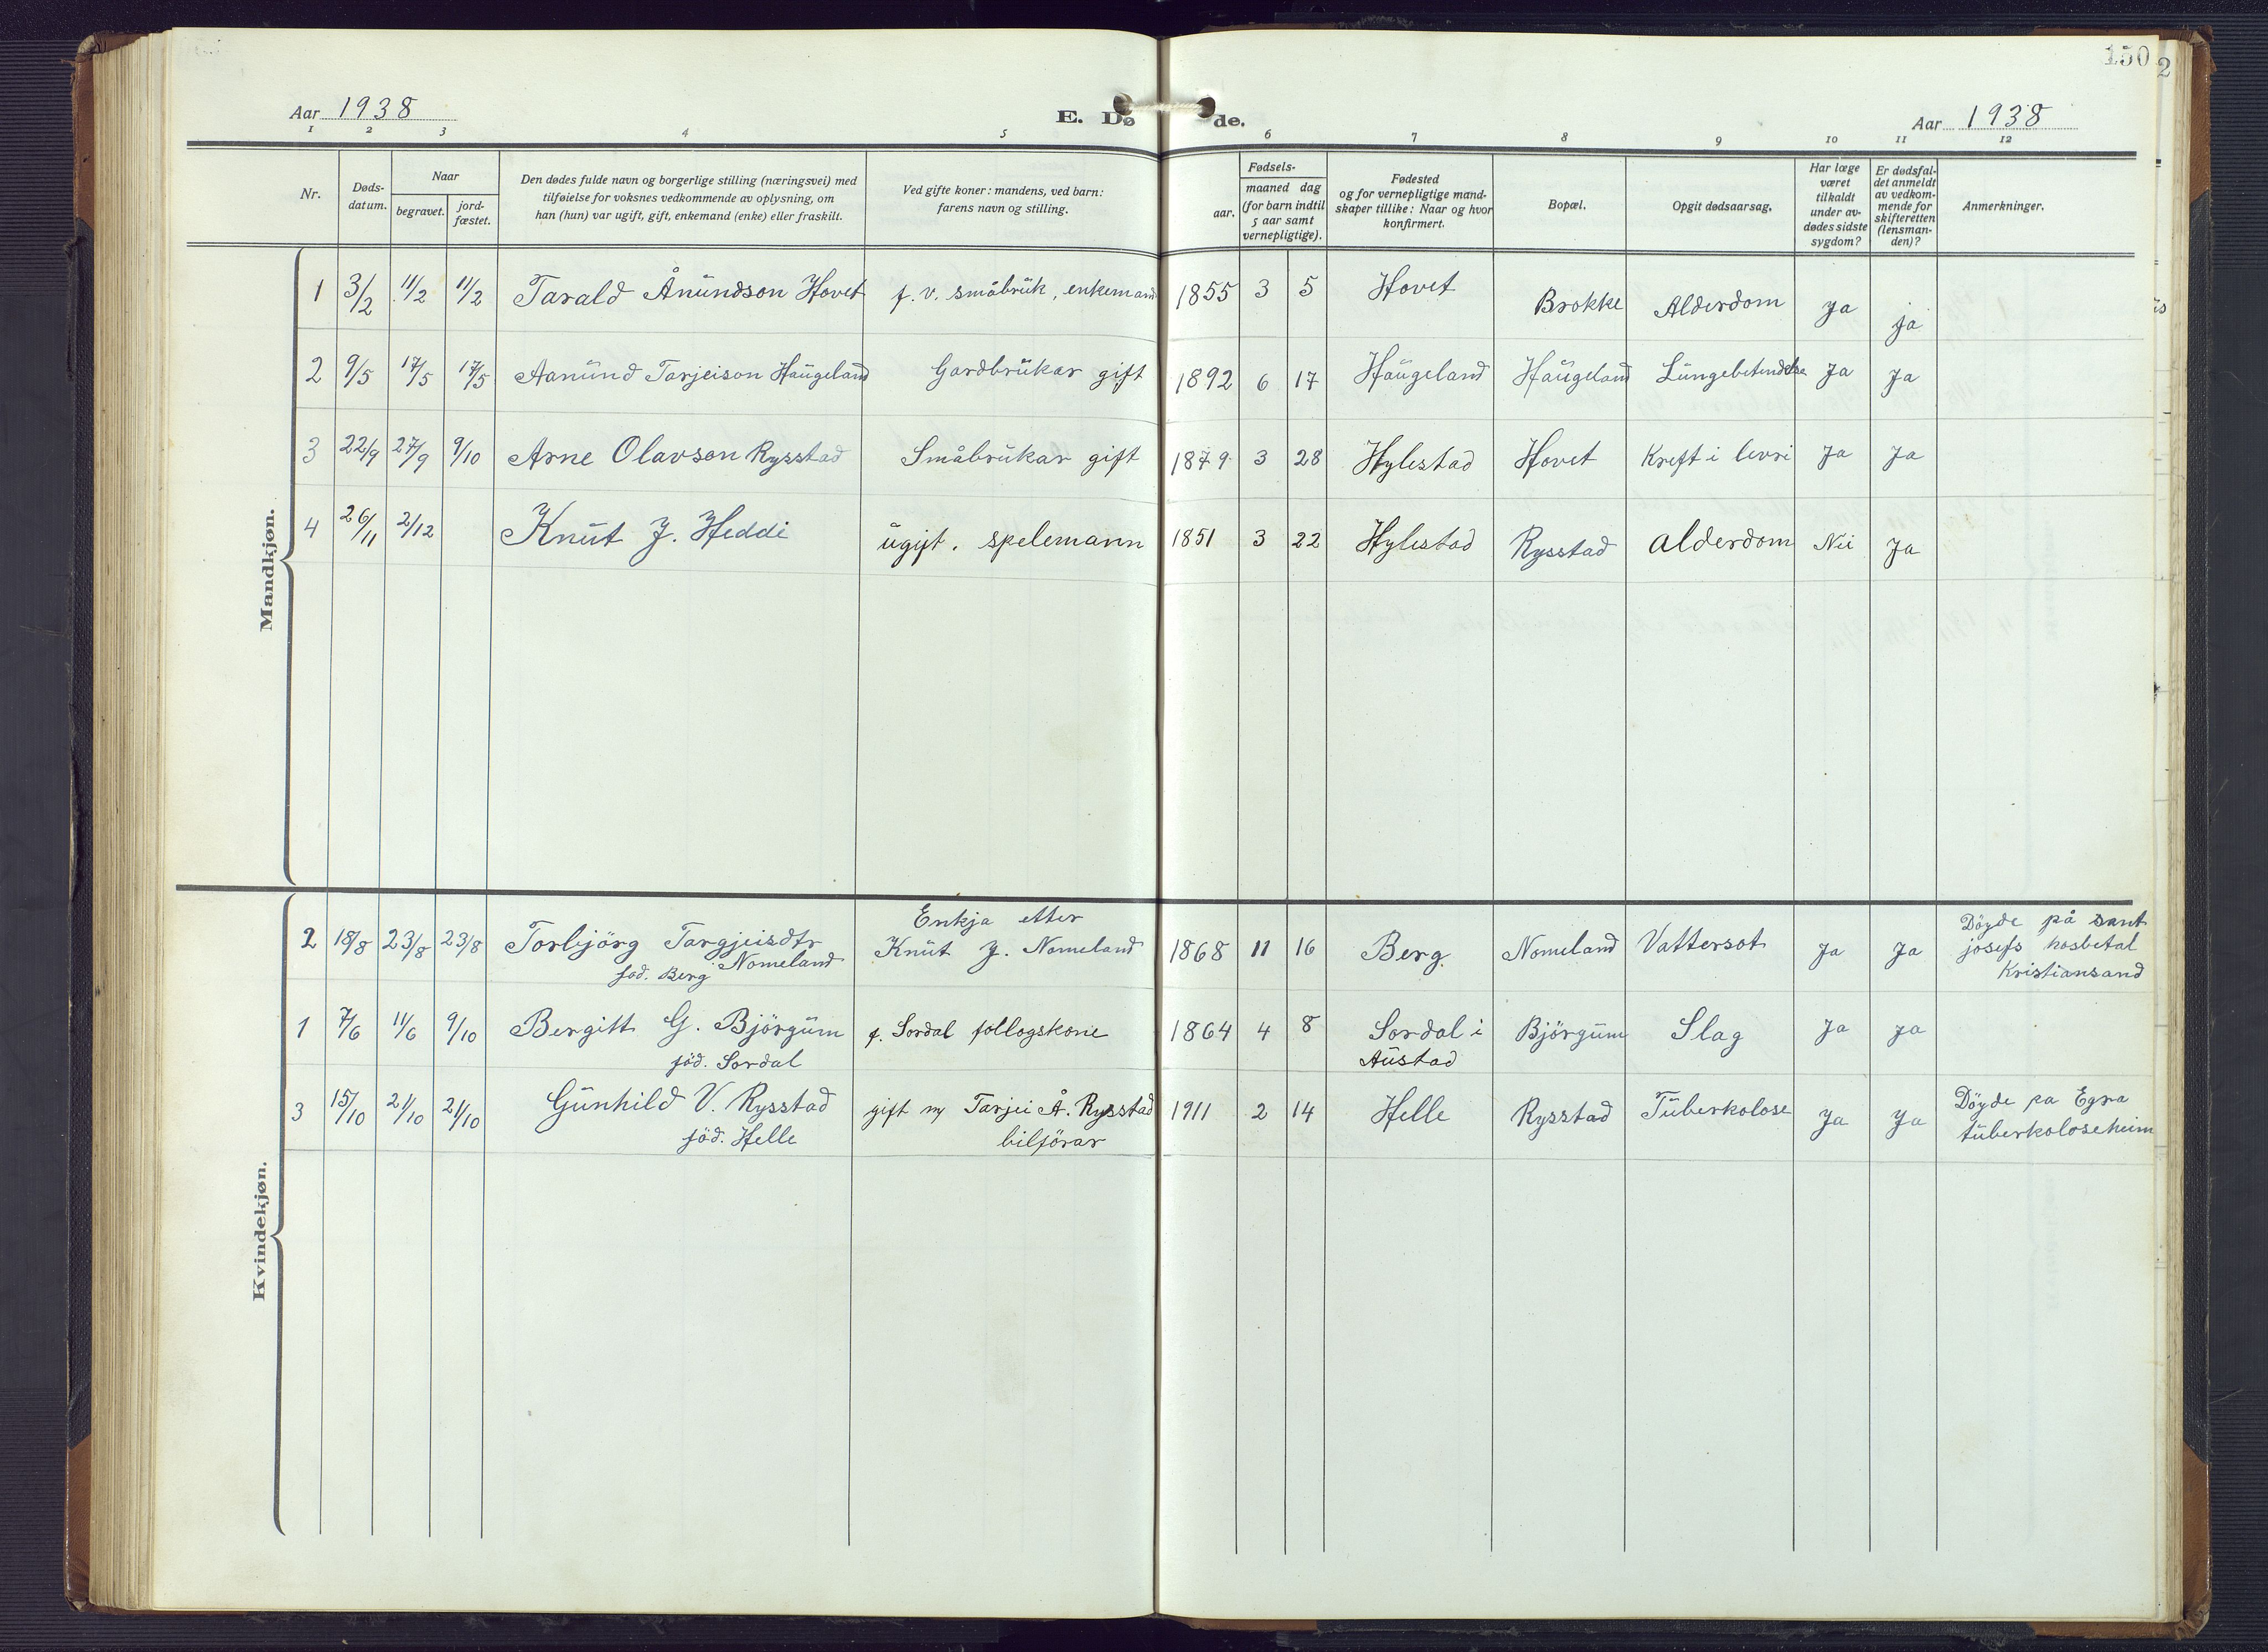 150
2
Aar 1938
E. Dø
de.
Aar 1938
1 2 3 4 5 6 7 8 9 10 11 12
Nr.
Døds-
datum.
Naar
begravet.
jord-
fæstet.
Den dødes fulde navn og borgerlige stilling (næringsvei) med
tilføielse for voksnes vedkommende av oplysning, om
han (hun) var ugift, gift, enkemand (enke) eller fraskilt.
Ved gifte koner: mandens, ved barn:
farens navn og stilling.
Fødsels-
aar.
maaned dag
(for barn indtil
5 aar samt
vernepligtige).
Fødested
og for vernepligtige mand-
skaper tillike: Naar og hvor
konfirmert.
Bopæl.
Opgit dødsaarsag.
Har læge
været
tilkaldt
under av-
dødes sidste
sygdom?
Er dødsfal-
det anmeldt
av vedkom-
mende for
skifteretten
(lensman-
den)?
Anmerkninger.
Mandkjøn.
1 3/2 11/2 11/2 Tarald Ånundson Hovet f. v. småbruk, enkemann 1855 3 5 Hovet Brokke Alderdom Ja ja
2 9/5 17/5 17/5 Aanund Tarjeison Haugeland Gardbrukar gift 1892 6 17 Haugeland Haugeland Lungebetendelse Ja Ja
3 22/9 27/9 9/10 Arne Olavson Rysstad Småbrukar gift 1879 3 28 Hylestad Hovet Kreft i levri Ja Ja
4 26/11 2/12 Knut J. Heddi ugift. spelemann 1851 3 22 Hylestad Rysstad Alderdom Nei Ja
Kvindekjøn.
2 18/8 23/8 23/8 Torbjörg Targjeisdtr Nomeland
föd. Berg
Enkja etter
Knut J. Nomeland 1868 11 16 Berg Nomeland Vattersot Ja Ja
Döyde på sant
josefs hosbetal
Kristiansand
1 7/6 11/6 9/10 Bergitt G. Björgum
föd. Sordal
f. Sordal follogskone 1864 4 8 Sordal i
Austad
Björgum Slag Ja Ja
3 15/10 21/10 21/10 Gunhild V. Rysstad
föd. Helle
gift m/ Tarjei Å. Rysstad
bilförar
1911 2 14 Helle Rysstad Tuberkolose Ja Ja
Döyde pa Egra
tuberkoloseheim